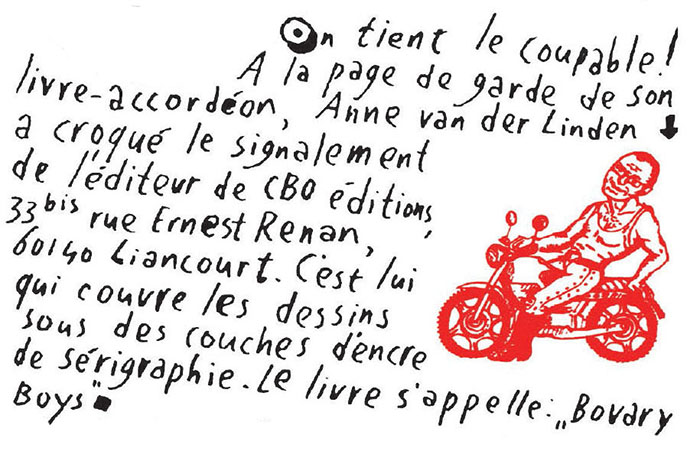 On tient le coupable!
A la page de garde de son
livre-accordéon, Anne van der Linden
a croqué le signalement
de l'éditeur de CBO éditions,
33bis rue Ernest Renan,
60140 Liancourt. C'est lui
qui couvre les dessins
sous des couches d'encre
de sérigraphie. Le livre s'appelle: „Bovary
Boys"